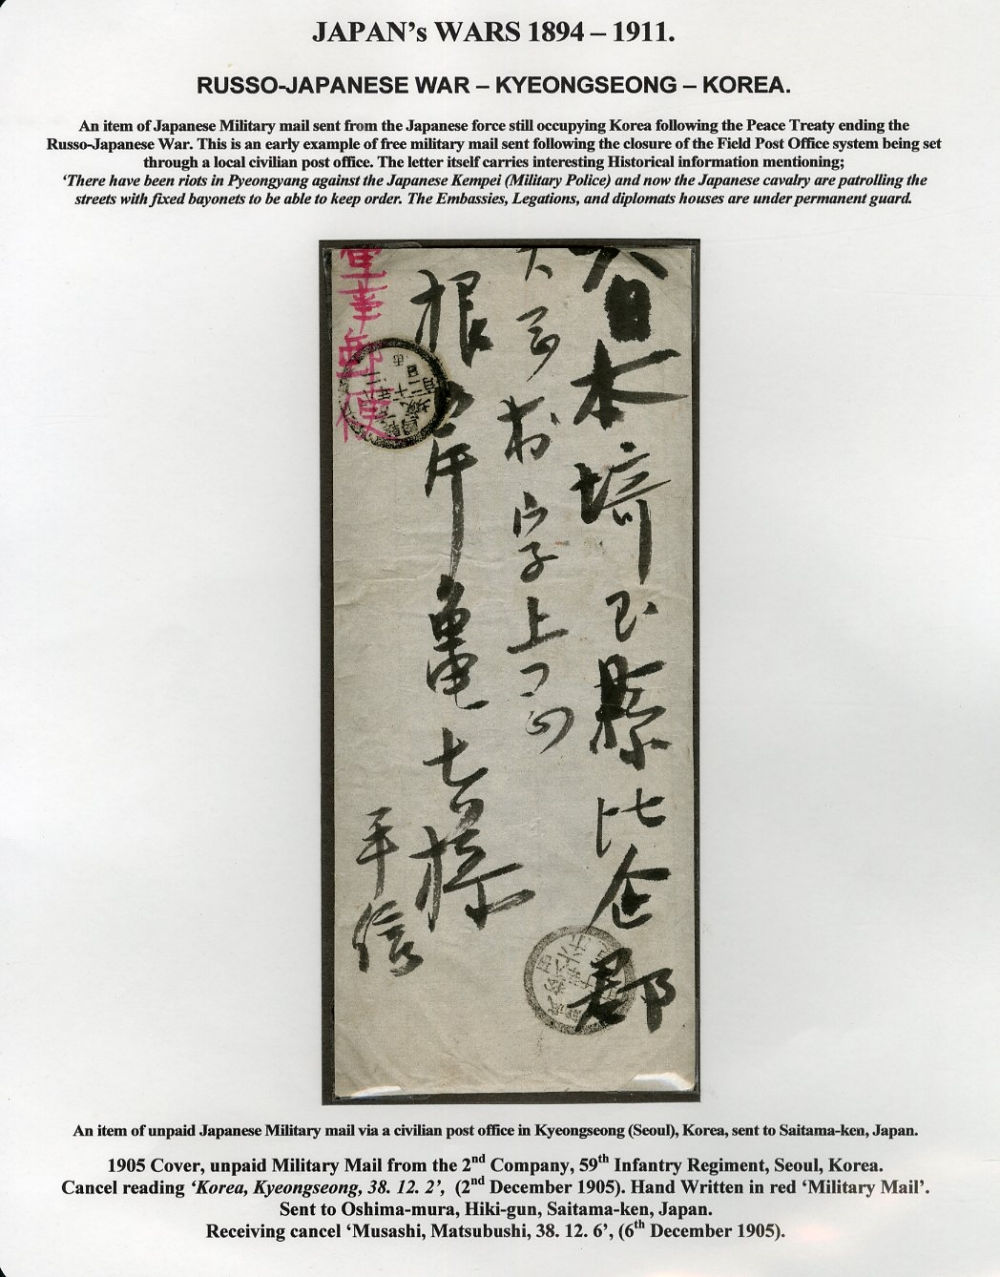 JAPAN's WARS 1894 – 1911.
RUSSO-JAPANESE WAR – KYEONGSEONG – KOREA.
An item of Japanese Military mail sent from the Japanese force still occupying Korea following the Peace Treaty ending the
Russo-Japanese War. This is an early example of free military mail sent following the closure of the Field Post Office system being set
through a local civilian post office. The letter itself carries interesting Historical information mentioning;
'There have been riots in Pyeongyang against the Japanese Kempei (Military Police) and now the Japanese cavalry are patrolling the
streets with fixed bayonets to be able to keep order. The Embassies, Legations, and diplomats houses are under permanent guard.
本埼玉縣比企郡
字上
根岸亀吉様
平信
軍事郵便
An item of unpaid Japanese Military mail via a civilian post office in Kyeongseong (Seoul), Korea, sent to Saitama-ken, Japan.
1905 Cover, unpaid Military Mail from the 2nd Company, 59th Infantry Regiment, Seoul, Korea.
Cancel reading 'Korea, Kyeongseong, 38. 12. 2', (2nd December 1905). Hand Written in red 'Military Mail'.
Sent to Oshima-mura, Hiki-gun, Saitama-ken, Japan.
Receiving cancel 'Musashi, Matsubushi, 38. 12. 6', (6th December 1905).